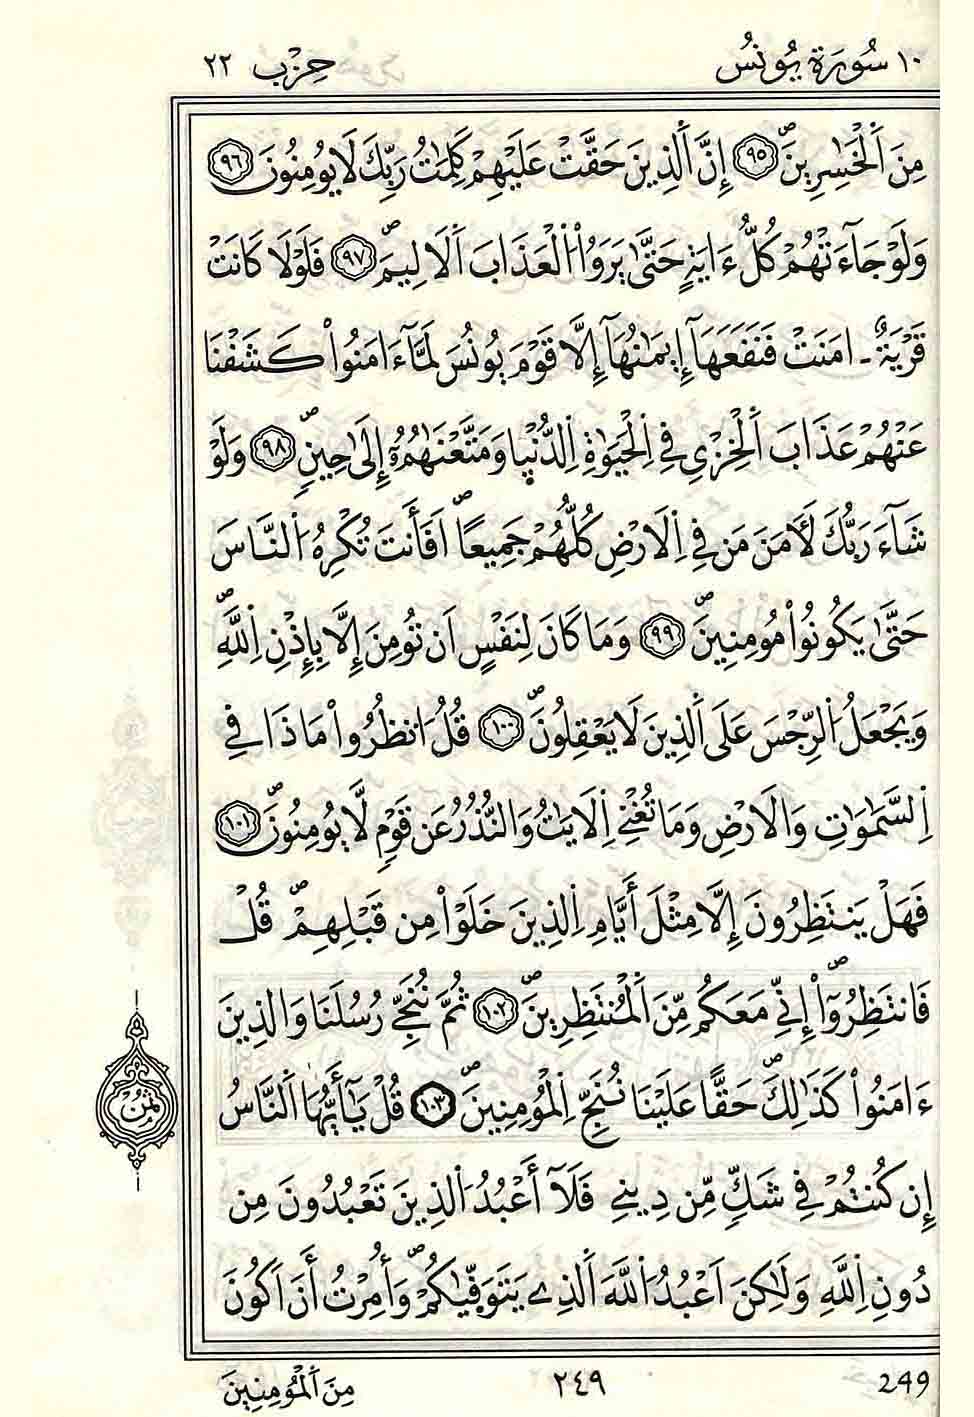 ١٠ سُورَةُ يُونُسَ حِزْب ٢٢
مِنَ اَ۬لْخَٰسِرِينَۖ ٩٥ إِنَّ اَ۬لذِينَ حَقَّتْ عَلَيْهِمْ كَلِمَٰتُ رَبِّكَ لَا يُومِنُونَ ٩٦
وَلَوْ جَآءَتْهُمْ كُلُّ ءَايَةٍ حَتَّىٰ يَرَوُاْ اُ۬لْعَذَابَ اَ۬لَالِيمَۖ ٩٧ فَلَوْلَا كَانَتْ
قَرْيَةٌ ـ امَنَتْ فَنَفَعَهَآ إِيمَٰنُهَآ إِلَّا قَوْمَ يُونُسَ لَمَّآ ءَامَنُواْ كَشَفْنَا
عَنْهُمْ عَذَابَ اَ۬لْخِزْيِ فِے اِ۬لْحَيَوٰةِ اِ۬لدُّنْيٜا وَمَتَّعْنَٰهُمُۥٓ إِلَىٰ حِينٖۖ ٩٨ وَلَوْ
شَآءَ رَبُّكَ لَأٓمَنَ مَن فِے اِ۬لَارْضِ كُلُّهُمْ جَمِيعاًۖ اَفَأَنتَ تُكْرِهُ اُ۬لنَّاسَ
حَتَّىٰ يَكُونُواْ مُومِنِينَۖ ٩٩ وَمَا كَانَ لِنَفْسٍ اَن تُومِنَ إِلَّا بِإِذْنِ اِ۬للَّهِۖ
وَيَجْعَلُ اُ۬لرِّجْسَ عَلَى اَ۬لذِينَ لَا يَعْقِلُونَۖ ١٠٠ قُلُ اُ۟نظُرُواْ مَاذَا فِے
اِ۬لسَّمَٰوَٰتِ وَالَارْضِ وَمَا تُغْنِے اِ۬لَايَٰتُ وَالنُّذُرُ عَن قَوْمٖ لَّا يُومِنُونَۖ ١٠١
فَهَلْ يَنتَظِرُونَ إِلَّا مِثْلَ أَيَّامِ اِ۬لذِينَ خَلَوْاْ مِن قَبْلِهِمْۖ قُلْ
فَانتَظِرُوٓاْۖ إِنِّے مَعَكُم مِّنَ اَ۬لْمُنتَظِرِينَۖ ١٠٢ ثُمَّ نُنَجِّے رُسُلَنَا وَالذِينَ
ءَامَنُواْ كَذَٰلِكَۖ حَقّاً عَلَيْنَا نُنَجِّ اِ۬لْمُومِنِينَۖ ١٠٣ قُلْ يَٰٓأَيُّهَا اَ۬لنَّاسُ
ثُمُن
إِن كُنتُمْ فِے شَكٍّ مِّن دِينِے فَلَآ أَعْبُدُ اُ۬لذِينَ تَعْبُدُونَ مِن
دُونِ اِ۬للَّهِ وَلَٰكِنَ اَعْبُدُ اُ۬للَّهَ اَ۬لذِے يَتَوَفّٜىٰكُمْۖ وَأُمِرْتُ أَنَ اَكُونَ
مِنَ اَ۬لْمُومِنِينَ ٢٤٩ 249